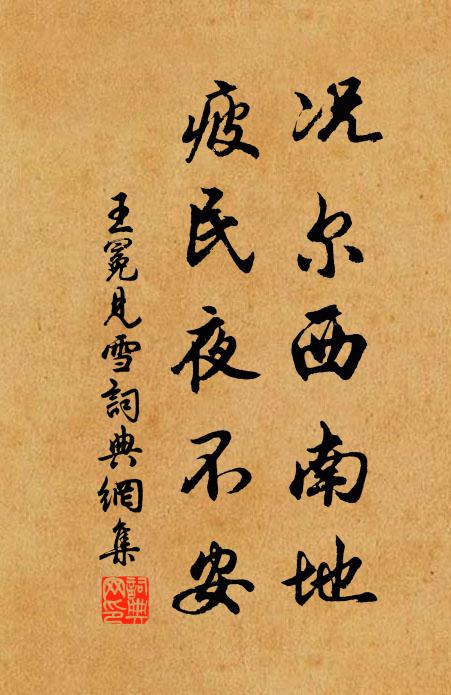 况尔西南地
疲民夜不安
王冕見雪詞典網集
詞典网印